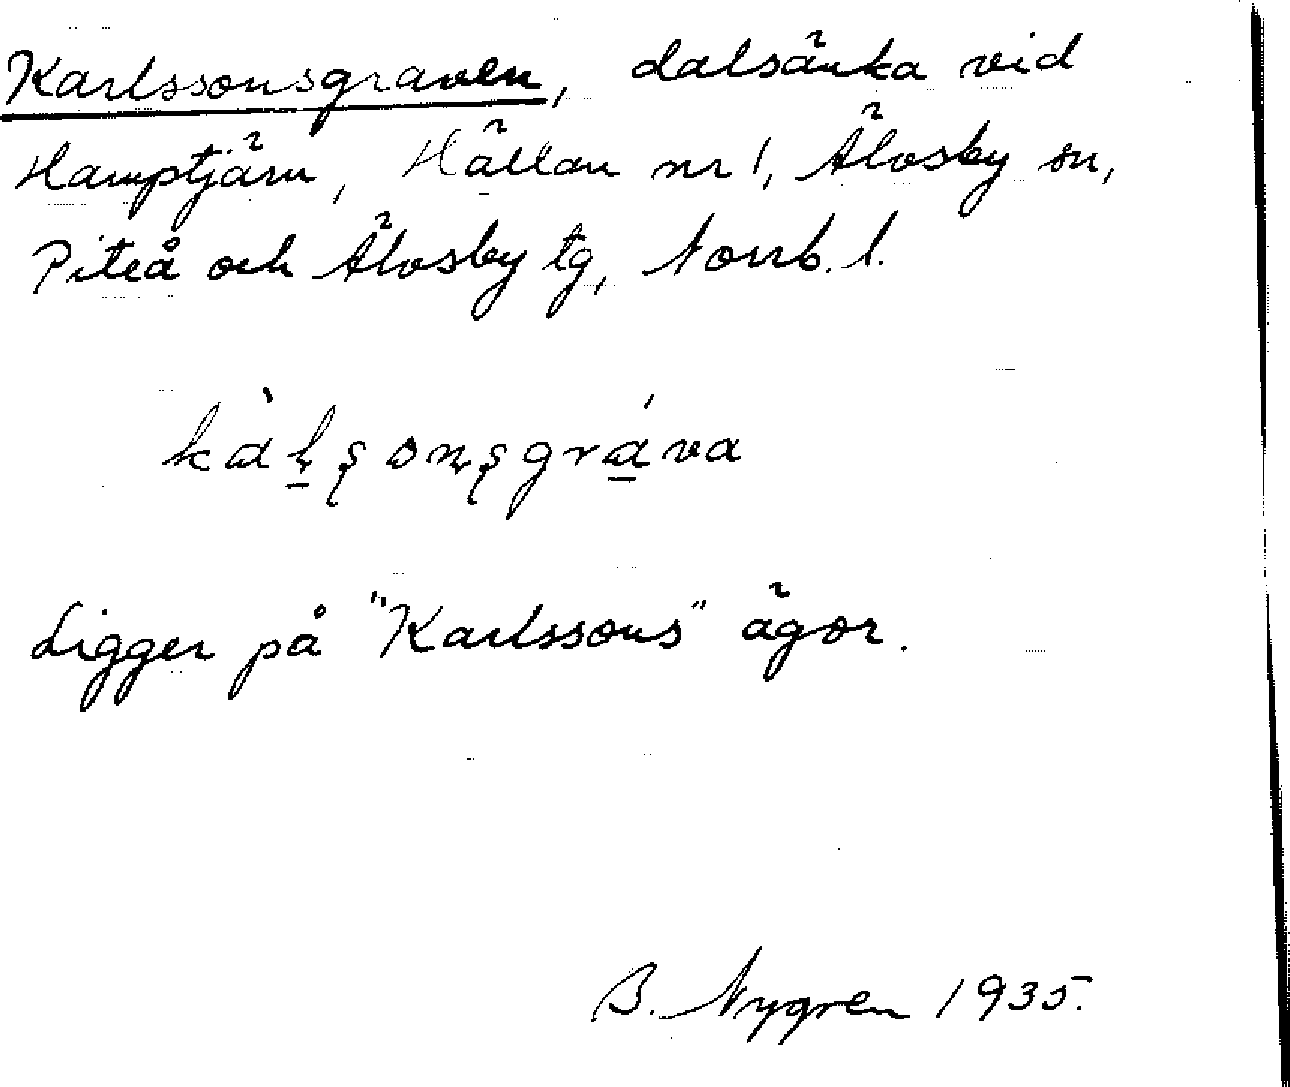 Karlssonsgraven, dalsänka vid
Hamptjärn, Hällan nr 1, Älvsby sn,
Piteå och Älvsby tg, Norrb. l.
kàl̥ʂonʂgráva
Ligger på "Karlssons" ägor.
B. Nygren 1935.